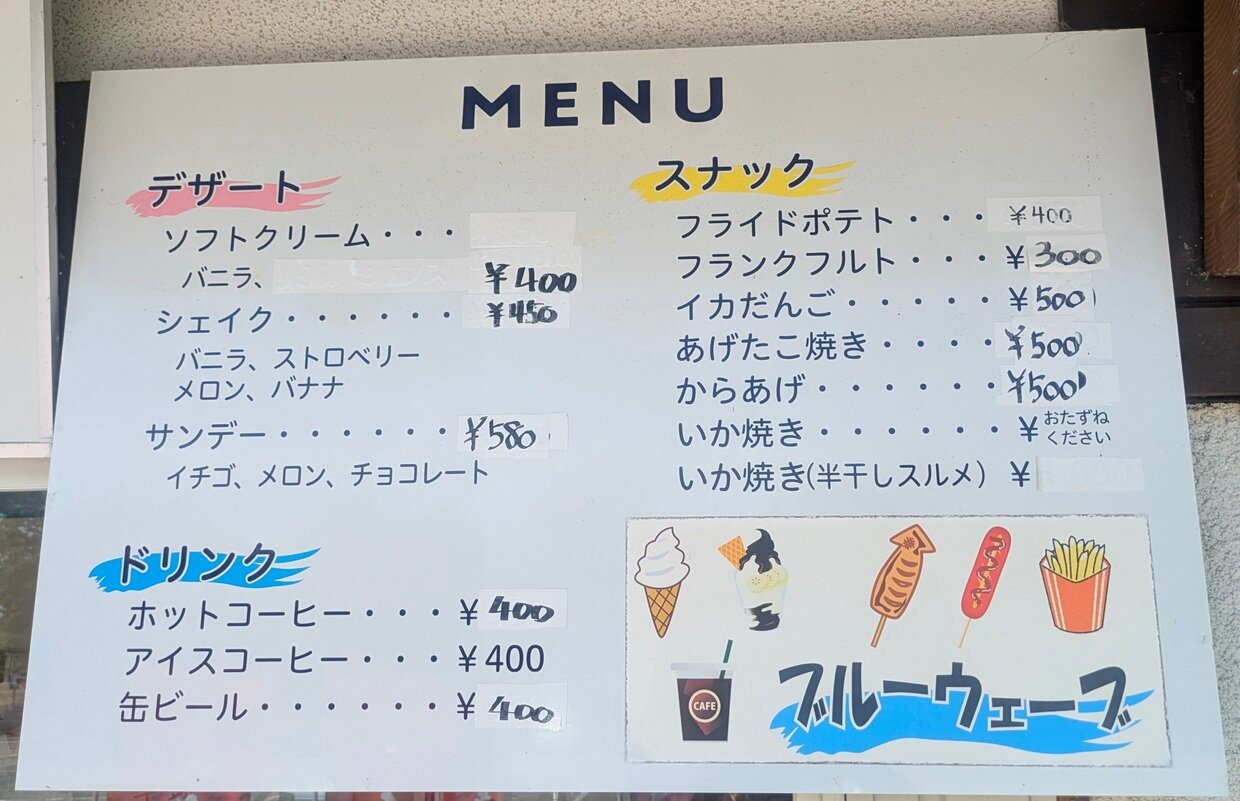 MENU
デザート
ソフトクリーム・・・
バニラ、 ¥400
シェイク・・・・・・ ¥450
バニラ、ストロベリー
メロン、バナナ
サンデー・・・・・・ ¥580
イチゴ、メロン、チョコレート
ドリンク
ホットコーヒー・・・¥400
アイスコーヒー・・・¥400
缶ビール・・・・・・¥400
スナック
フライドポテト・・・¥400
フランクフルト・・・¥300
イカだんご・・・・・¥500
あげたこ焼き・・・・¥500
からあげ・・・・・・¥500
いか焼き・・・・・・¥おたずね
ください
いか焼き(半干しスルメ) ¥
CAFE
ブルーウェーブ